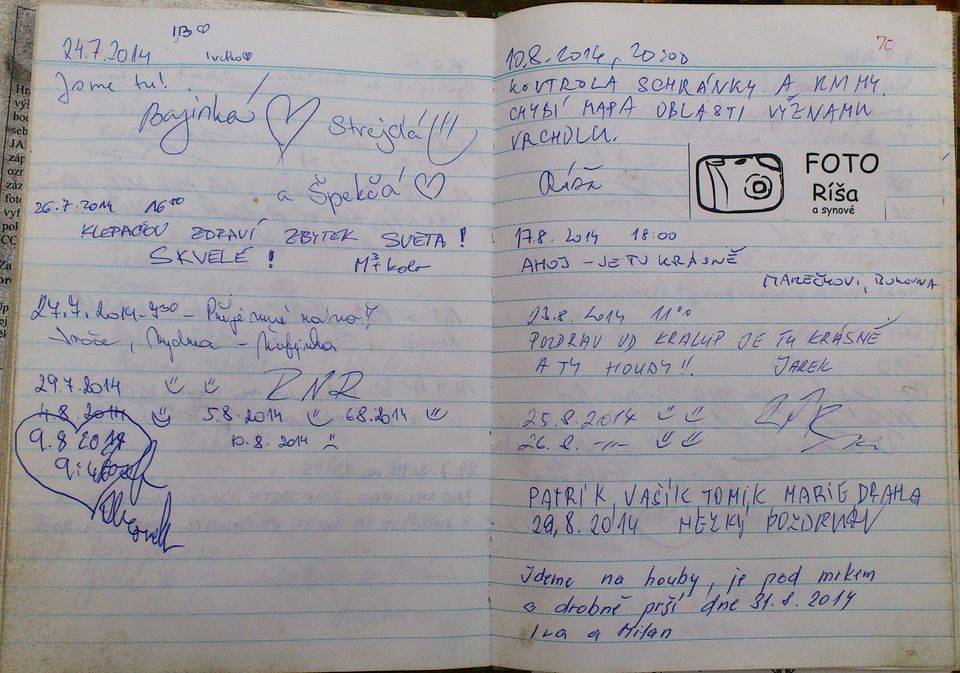 24.7.2014
Jsme tu!
Bajinká
Strejdá!!!
a Špekčá
26.7.2014 16⁵⁰
KLEPAČOV ZDRAVÍ ZBYTEK SVĚTA!
SKVELÉ!
27.7.2014 - 7³⁰ -
29.7.2014
4.8.2014 5.8.2014 6.8.2014
9.8.2014 10.8.2014
70
10.8.2014, 20:00
KONTROLA SCHRÁNKY A KNIHY,
CHYBÍ MAPA OBLASTI VÝZNAMU
VRCHOLU.
Ríša
FOTO
Ríša
a synové
17.8.2014 18:00
AHOJ - JE TU KRÁSNĚ
MAREČKOVI, BUKOVNA
23.8.2014 11⁰⁰
POZDRAV OD KRALUP JE TU KRÁSNĚ
A TY HOUBY!!. JAREK
25.8.2014
26.8. -"-
PATRIK, VAŠÍK TOMÍK MARIE DRAHA
29,8.2014 HEZKÝ POZDRAV
Jdeme na houby, je pod mrkem
a drobně prší dne 31.8.2014
Iva a Milan